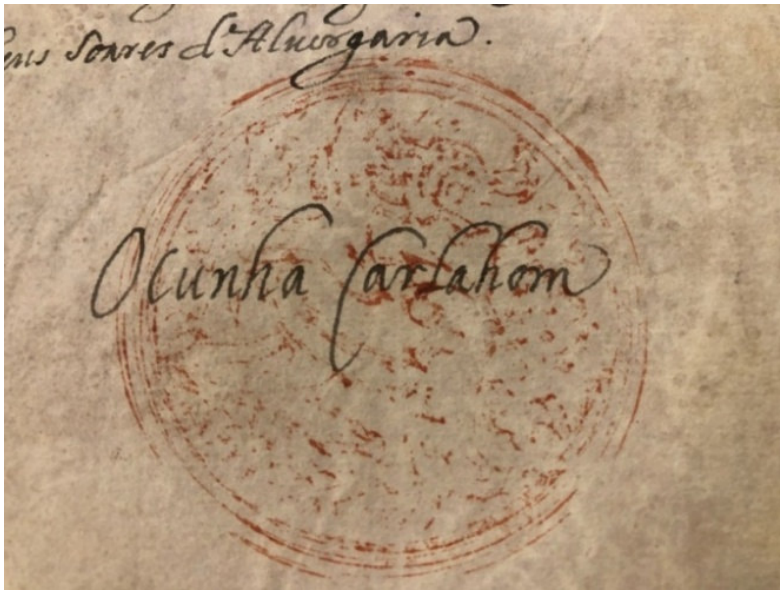 Soares d'Aluergaria.
Ocunha Carlahom